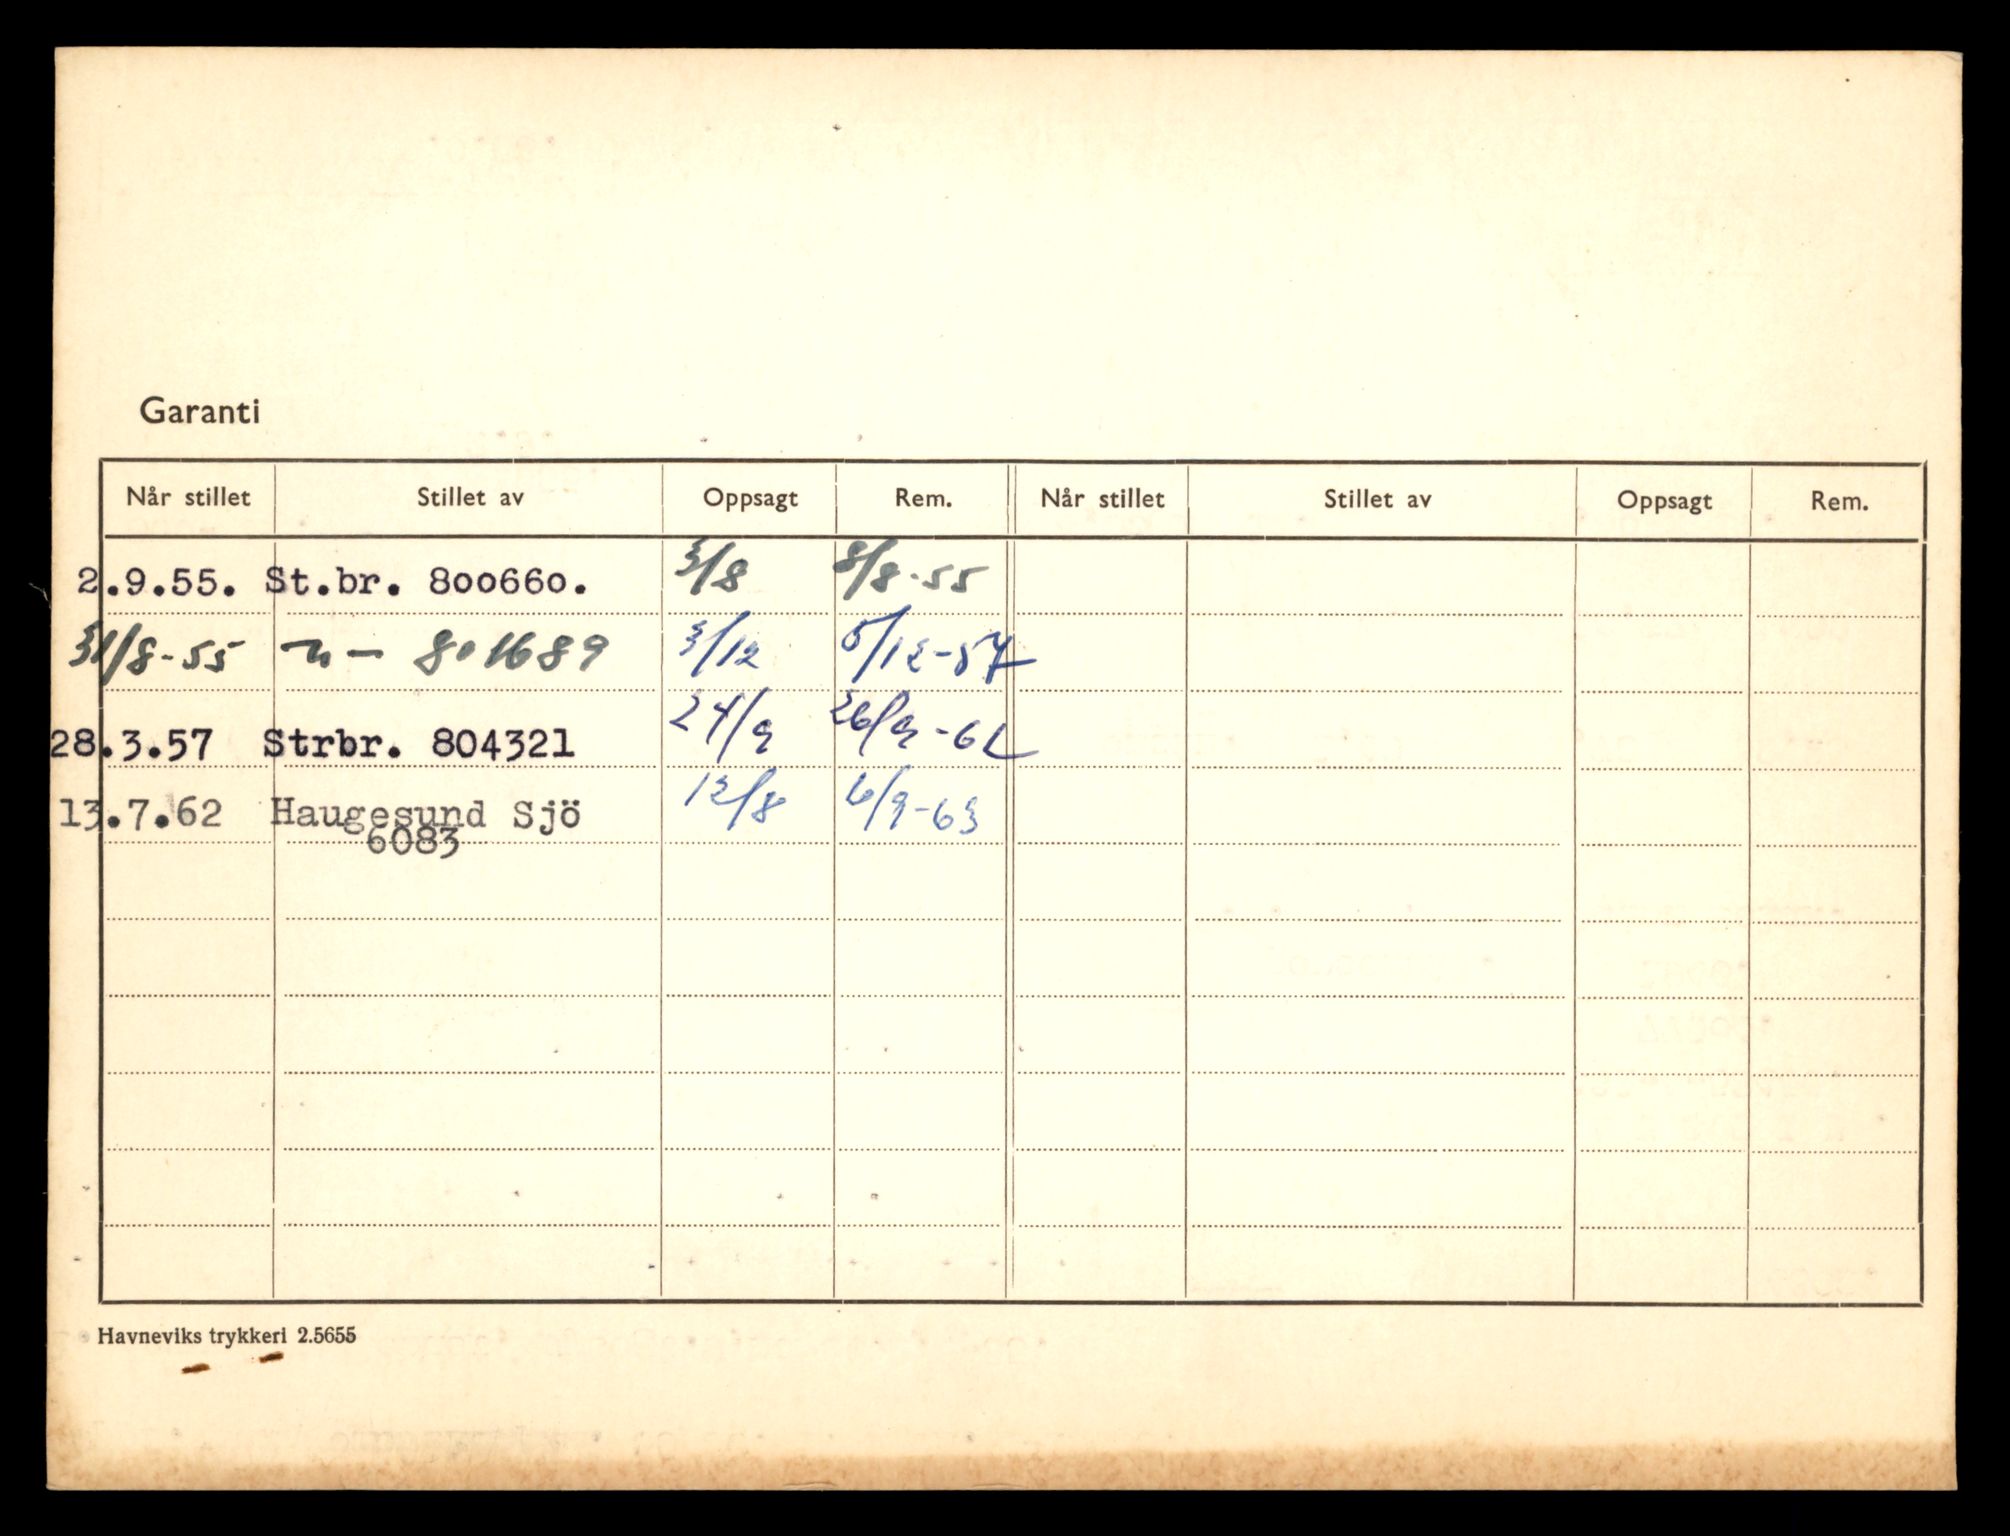 Garanti
Når stillet Stillet av Oppsagt Rem. Når stillet Stillet av Oppsagt Rem.
2.9.55. St.br. 800660. 3/8 8/8-55
31/8-55 — 801689 3/12 5/12-57
28.3.57 Strbr. 804321 24/9 26/9-62
13.7.62 Haugesund Sjö 12/8 6/9-63
6083
Havneviks trykkeri 2.5655